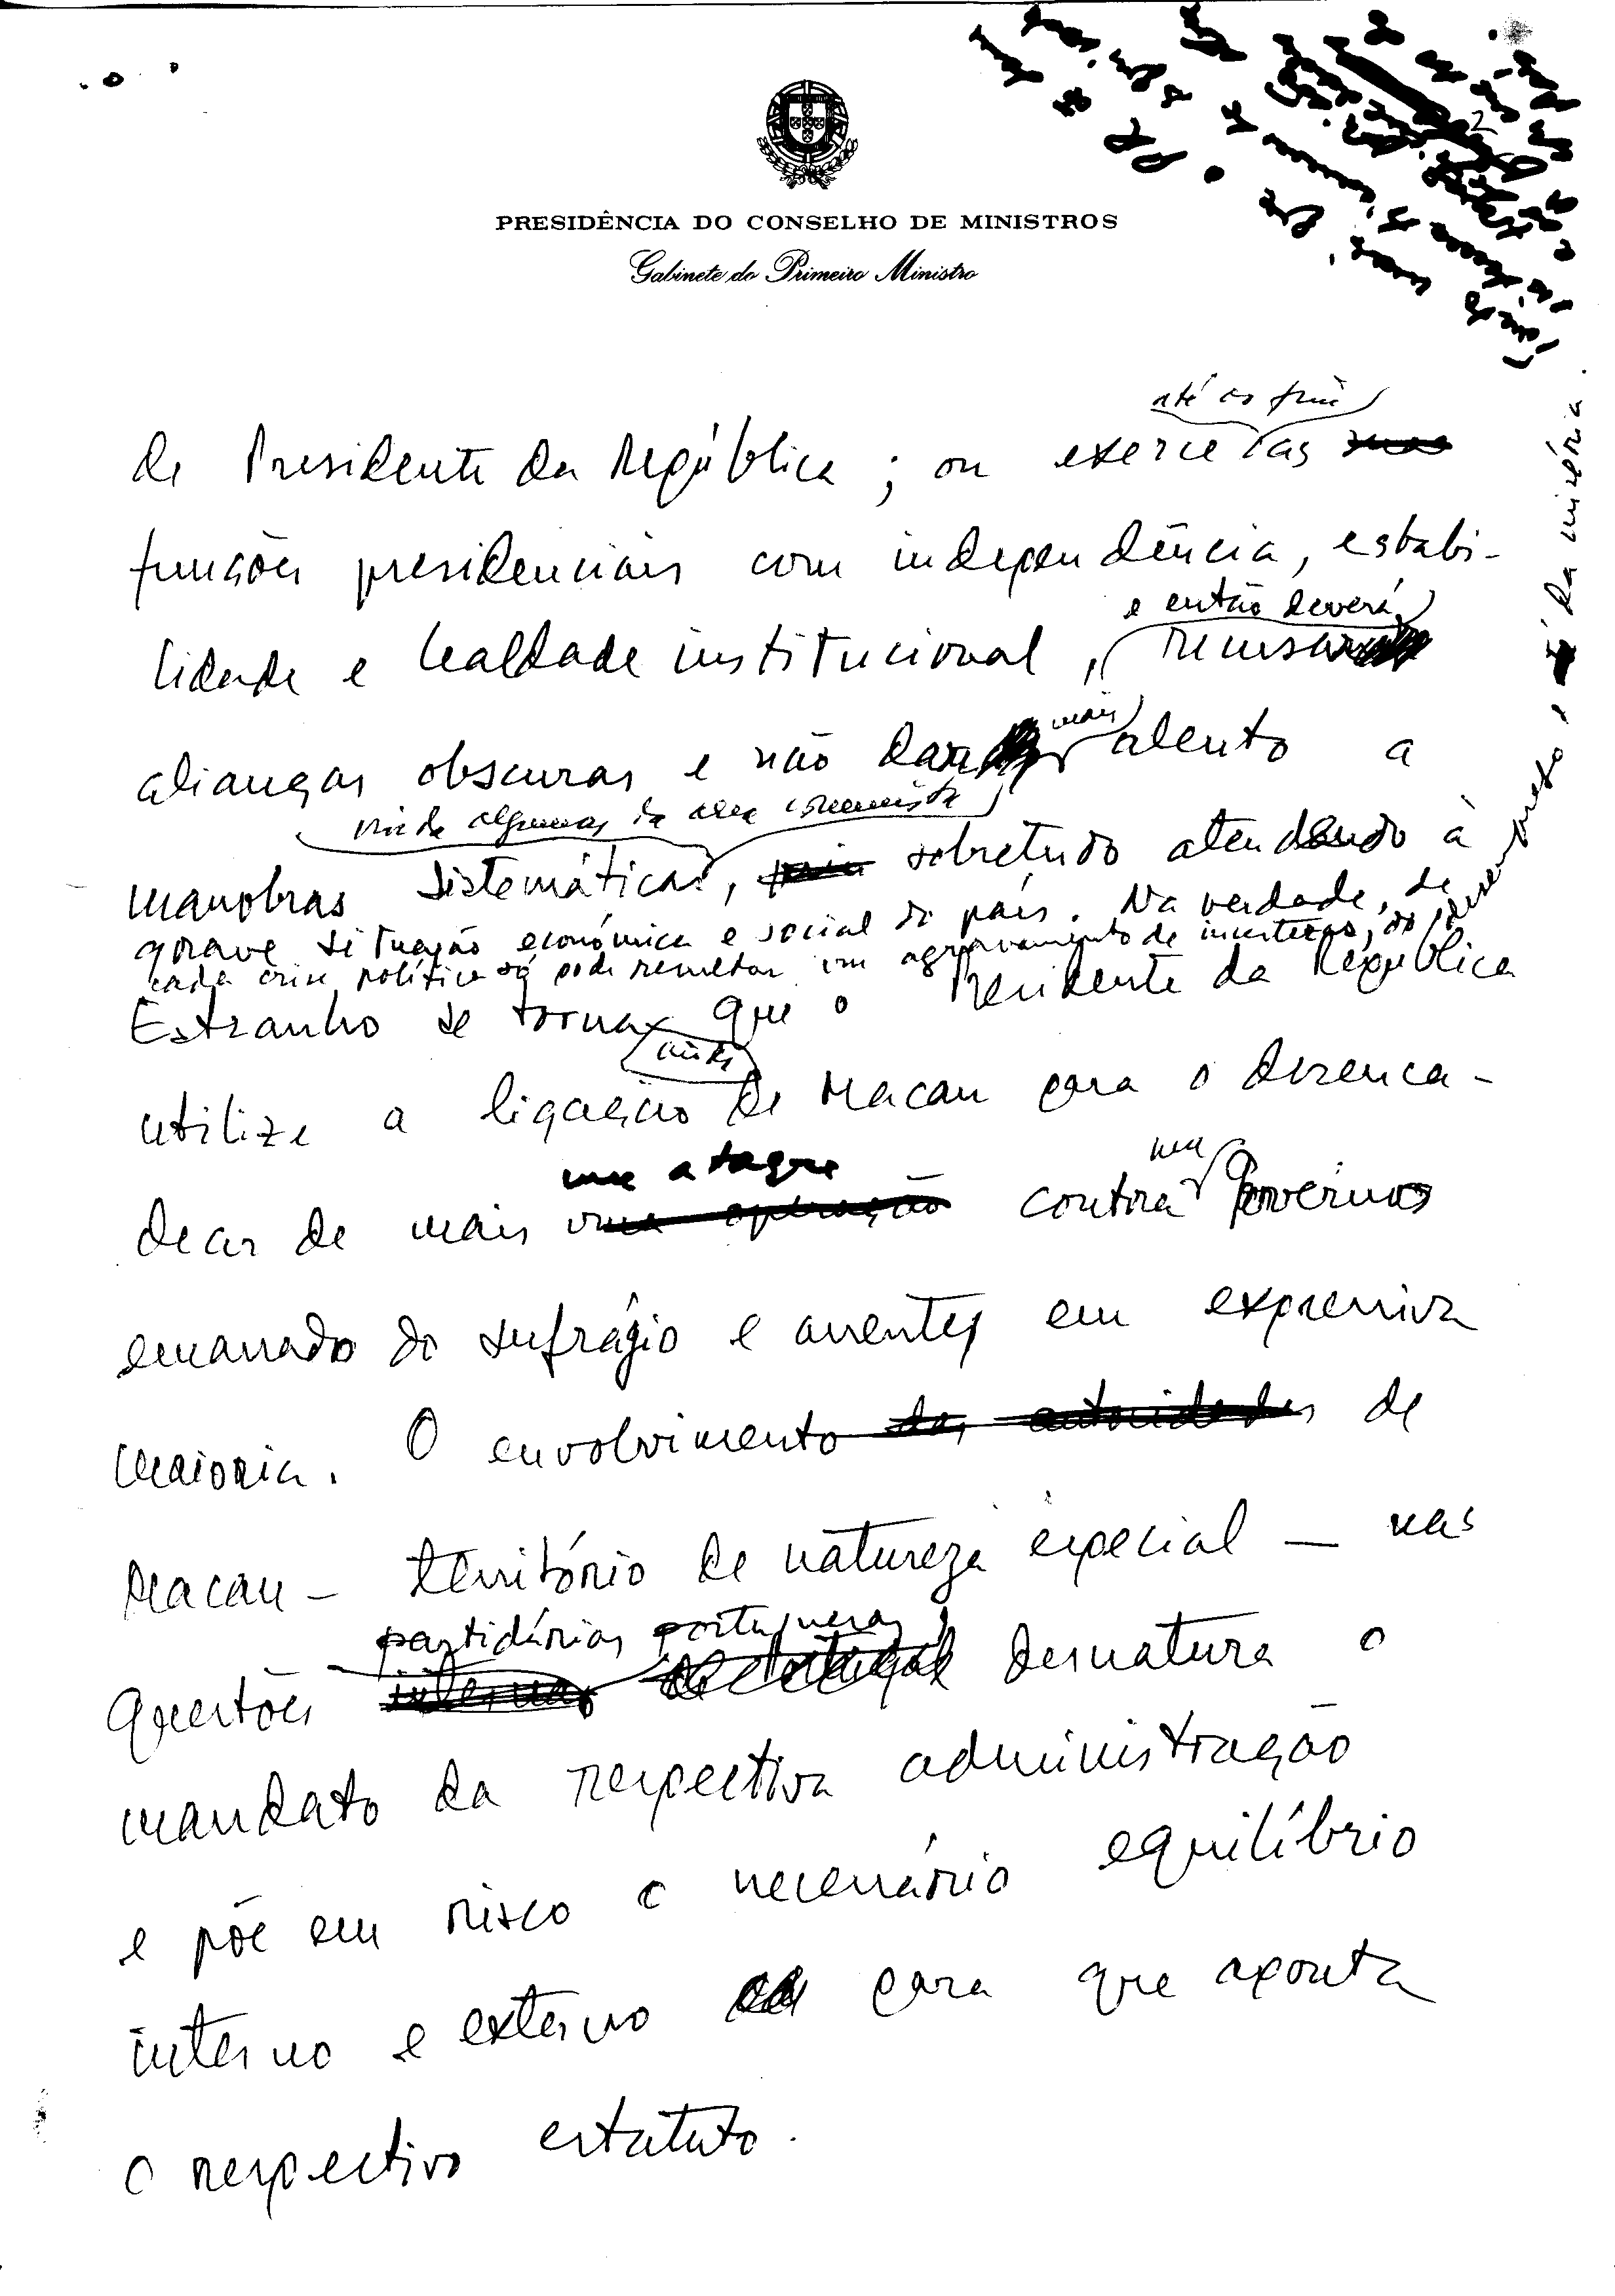 2
PRESIDÊNCIA DO CONSELHO DE MINISTROS
Gabinete do Primeiro Ministro
até ao fim
de Presidente da República ; ou exerce as suas
funções presidenciais com independência, estabi-
lidade e lealdade institucional,
e então deverá
recusar
alianças obscuras e não dar
mais
alento a
vinda algumas da área comunista
manobras sistemáticas, sobretudo atendendo à
grave situação económica e social do país. Na verdade, de
cada crise política só pode resultar um agravamento de incertezas, do desemprego, e da miséria.
Estranho se torna que o Presidente da República
utilize a ligação
ainda
de Macau para o desenca-
dear de mais
um ataque
uma operação contra
um
Governo
emanado do sufrágio e assente em expressiva
maioria. O envolvimento das autoridades de
Macau – território de natureza especial – nas
partidárias portuguesas
questões internas de Portugal desnatura o
mandato da respectiva administração
e põe em risco o necessário equilíbrio
interno e externo para que aponta
o respectivo estatuto.